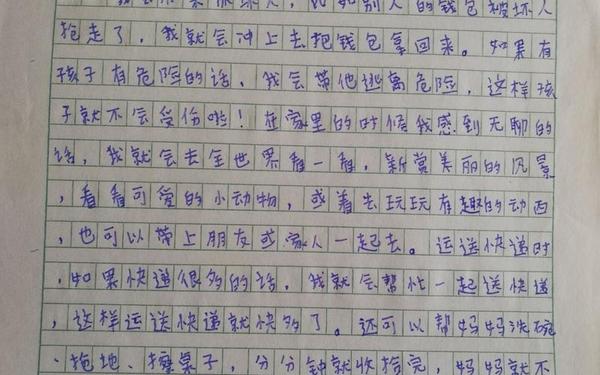 比如别人的钱包被坏人
抢走了，我就会冲上去把钱包拿回来。如果有
孩子有危险的话，我会带他逃离危险，这样孩
子就不会受伤啦！在家里的时候我感到无聊的
话，我就会去全世界看一看，新赏美丽的风景
，看看可爱的小动物，或着去玩玩有趣的动西
，也可以带上朋友或家人一起去。运送快递时
，如果快递很多的话，我就会帮忙一起送快递
，这样运送快递就快多了。还可以帮妈妈洗碗
、拖地、擦桌子，分分钟就收拾完，妈妈就不